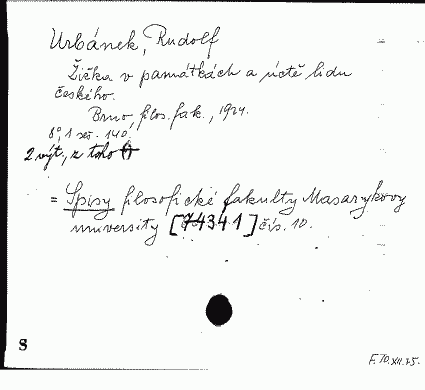 Urbánek, Rudolf
Žižka v památkách a úctě lidu
českého.
Brno, filos. fak., 1924.
8°, 1 seš. 140.
2 výt., z toho
= Spisy filosofické fakulty Masarykovy
university [74341] čís. 10.
S
F. 70.XII.75.